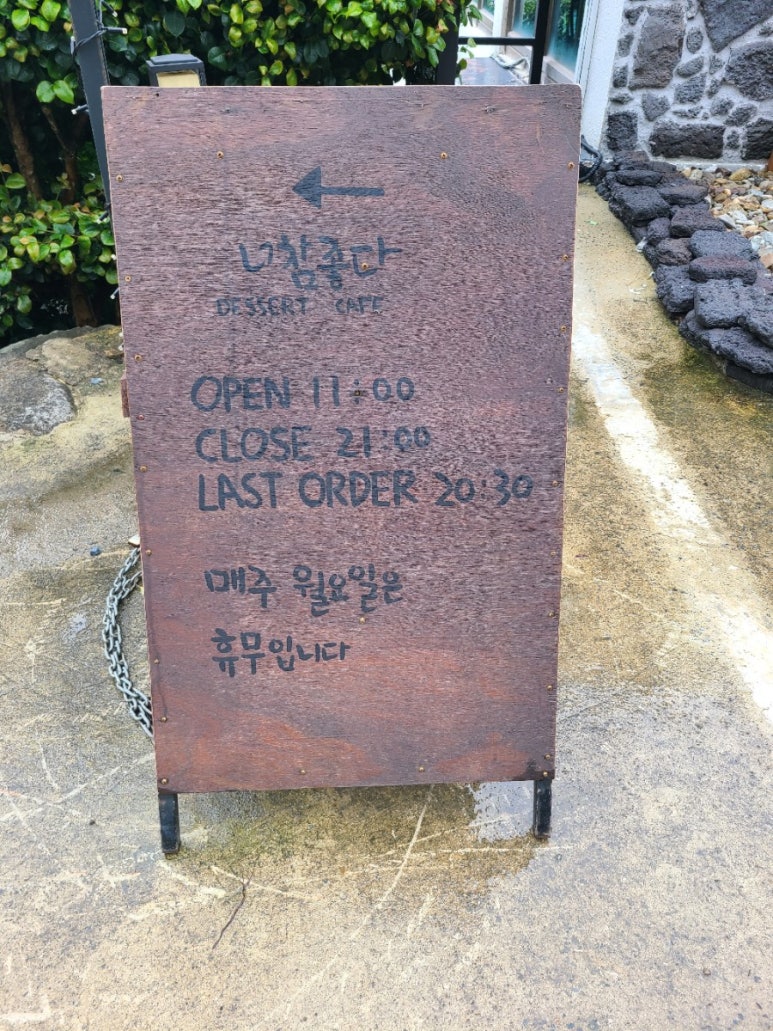 너참좋다
DESSERT CAFE
OPEN 11:00
CLOSE 21:00
LAST ORDER 20:30
매주 월요일은
휴무입니다